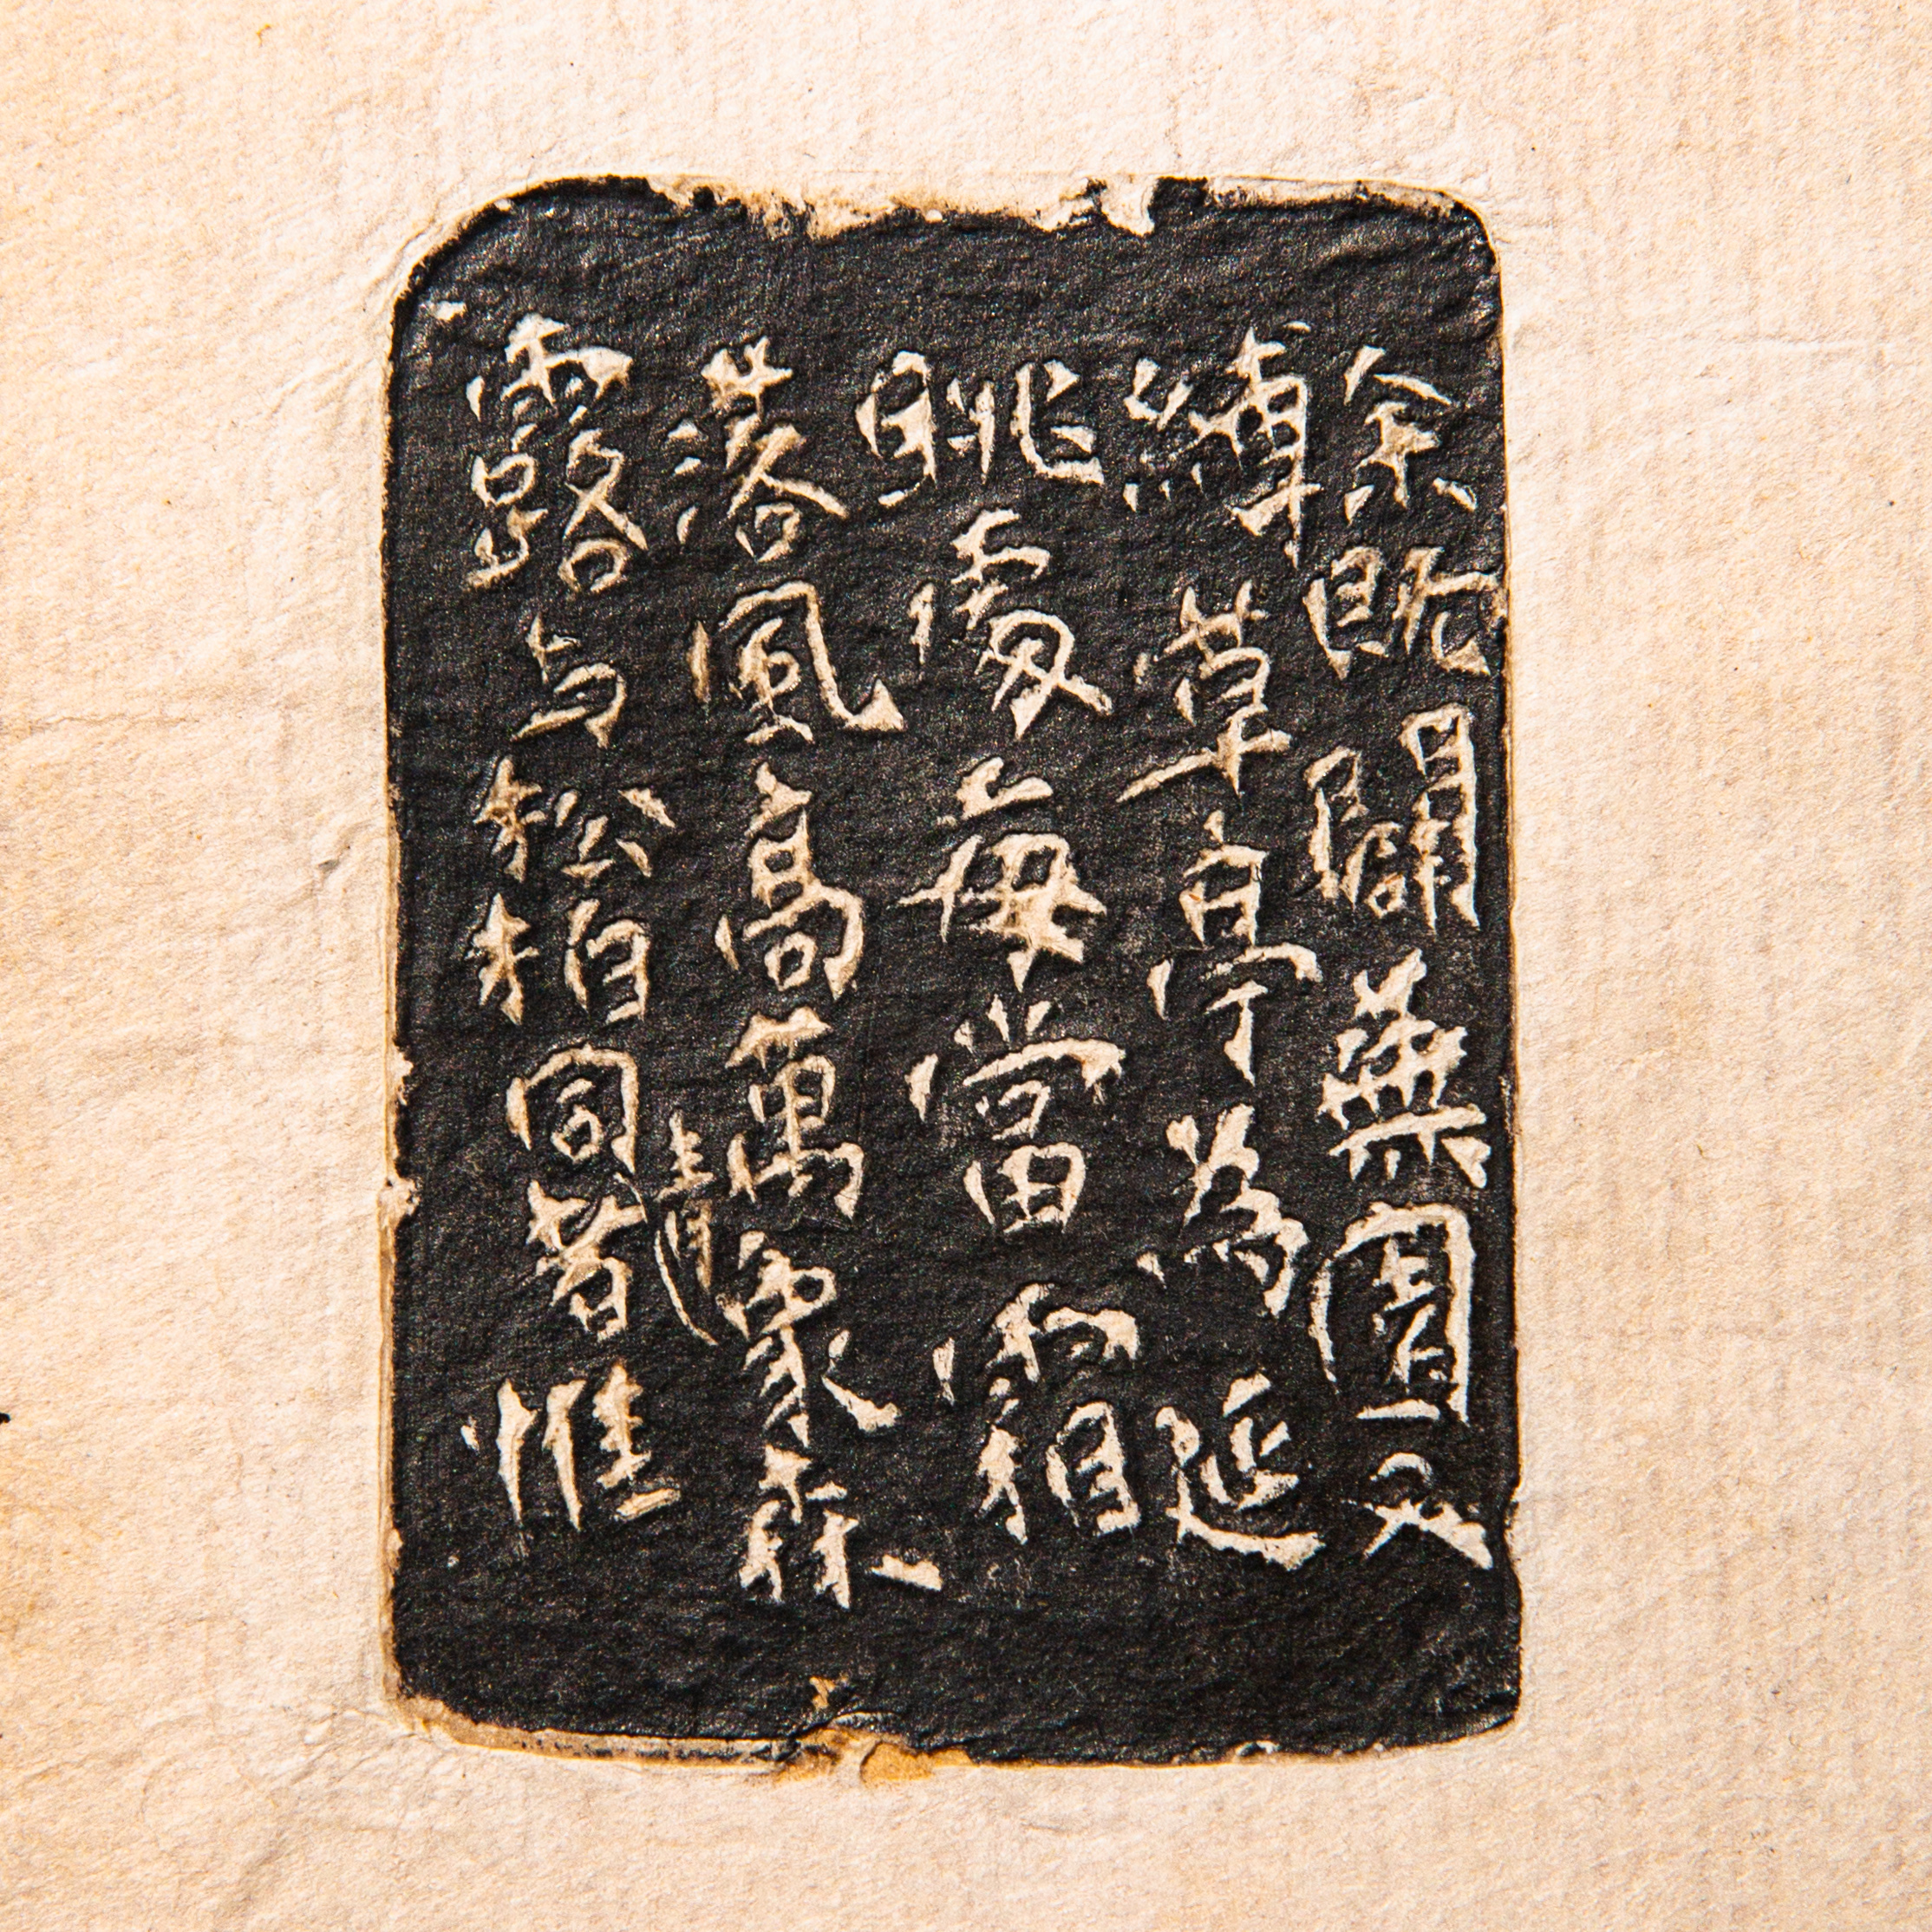 余既闢蕪園又
縛草亭為延
眺處每當霜
落風高萬象森
露与松柏同青者惟